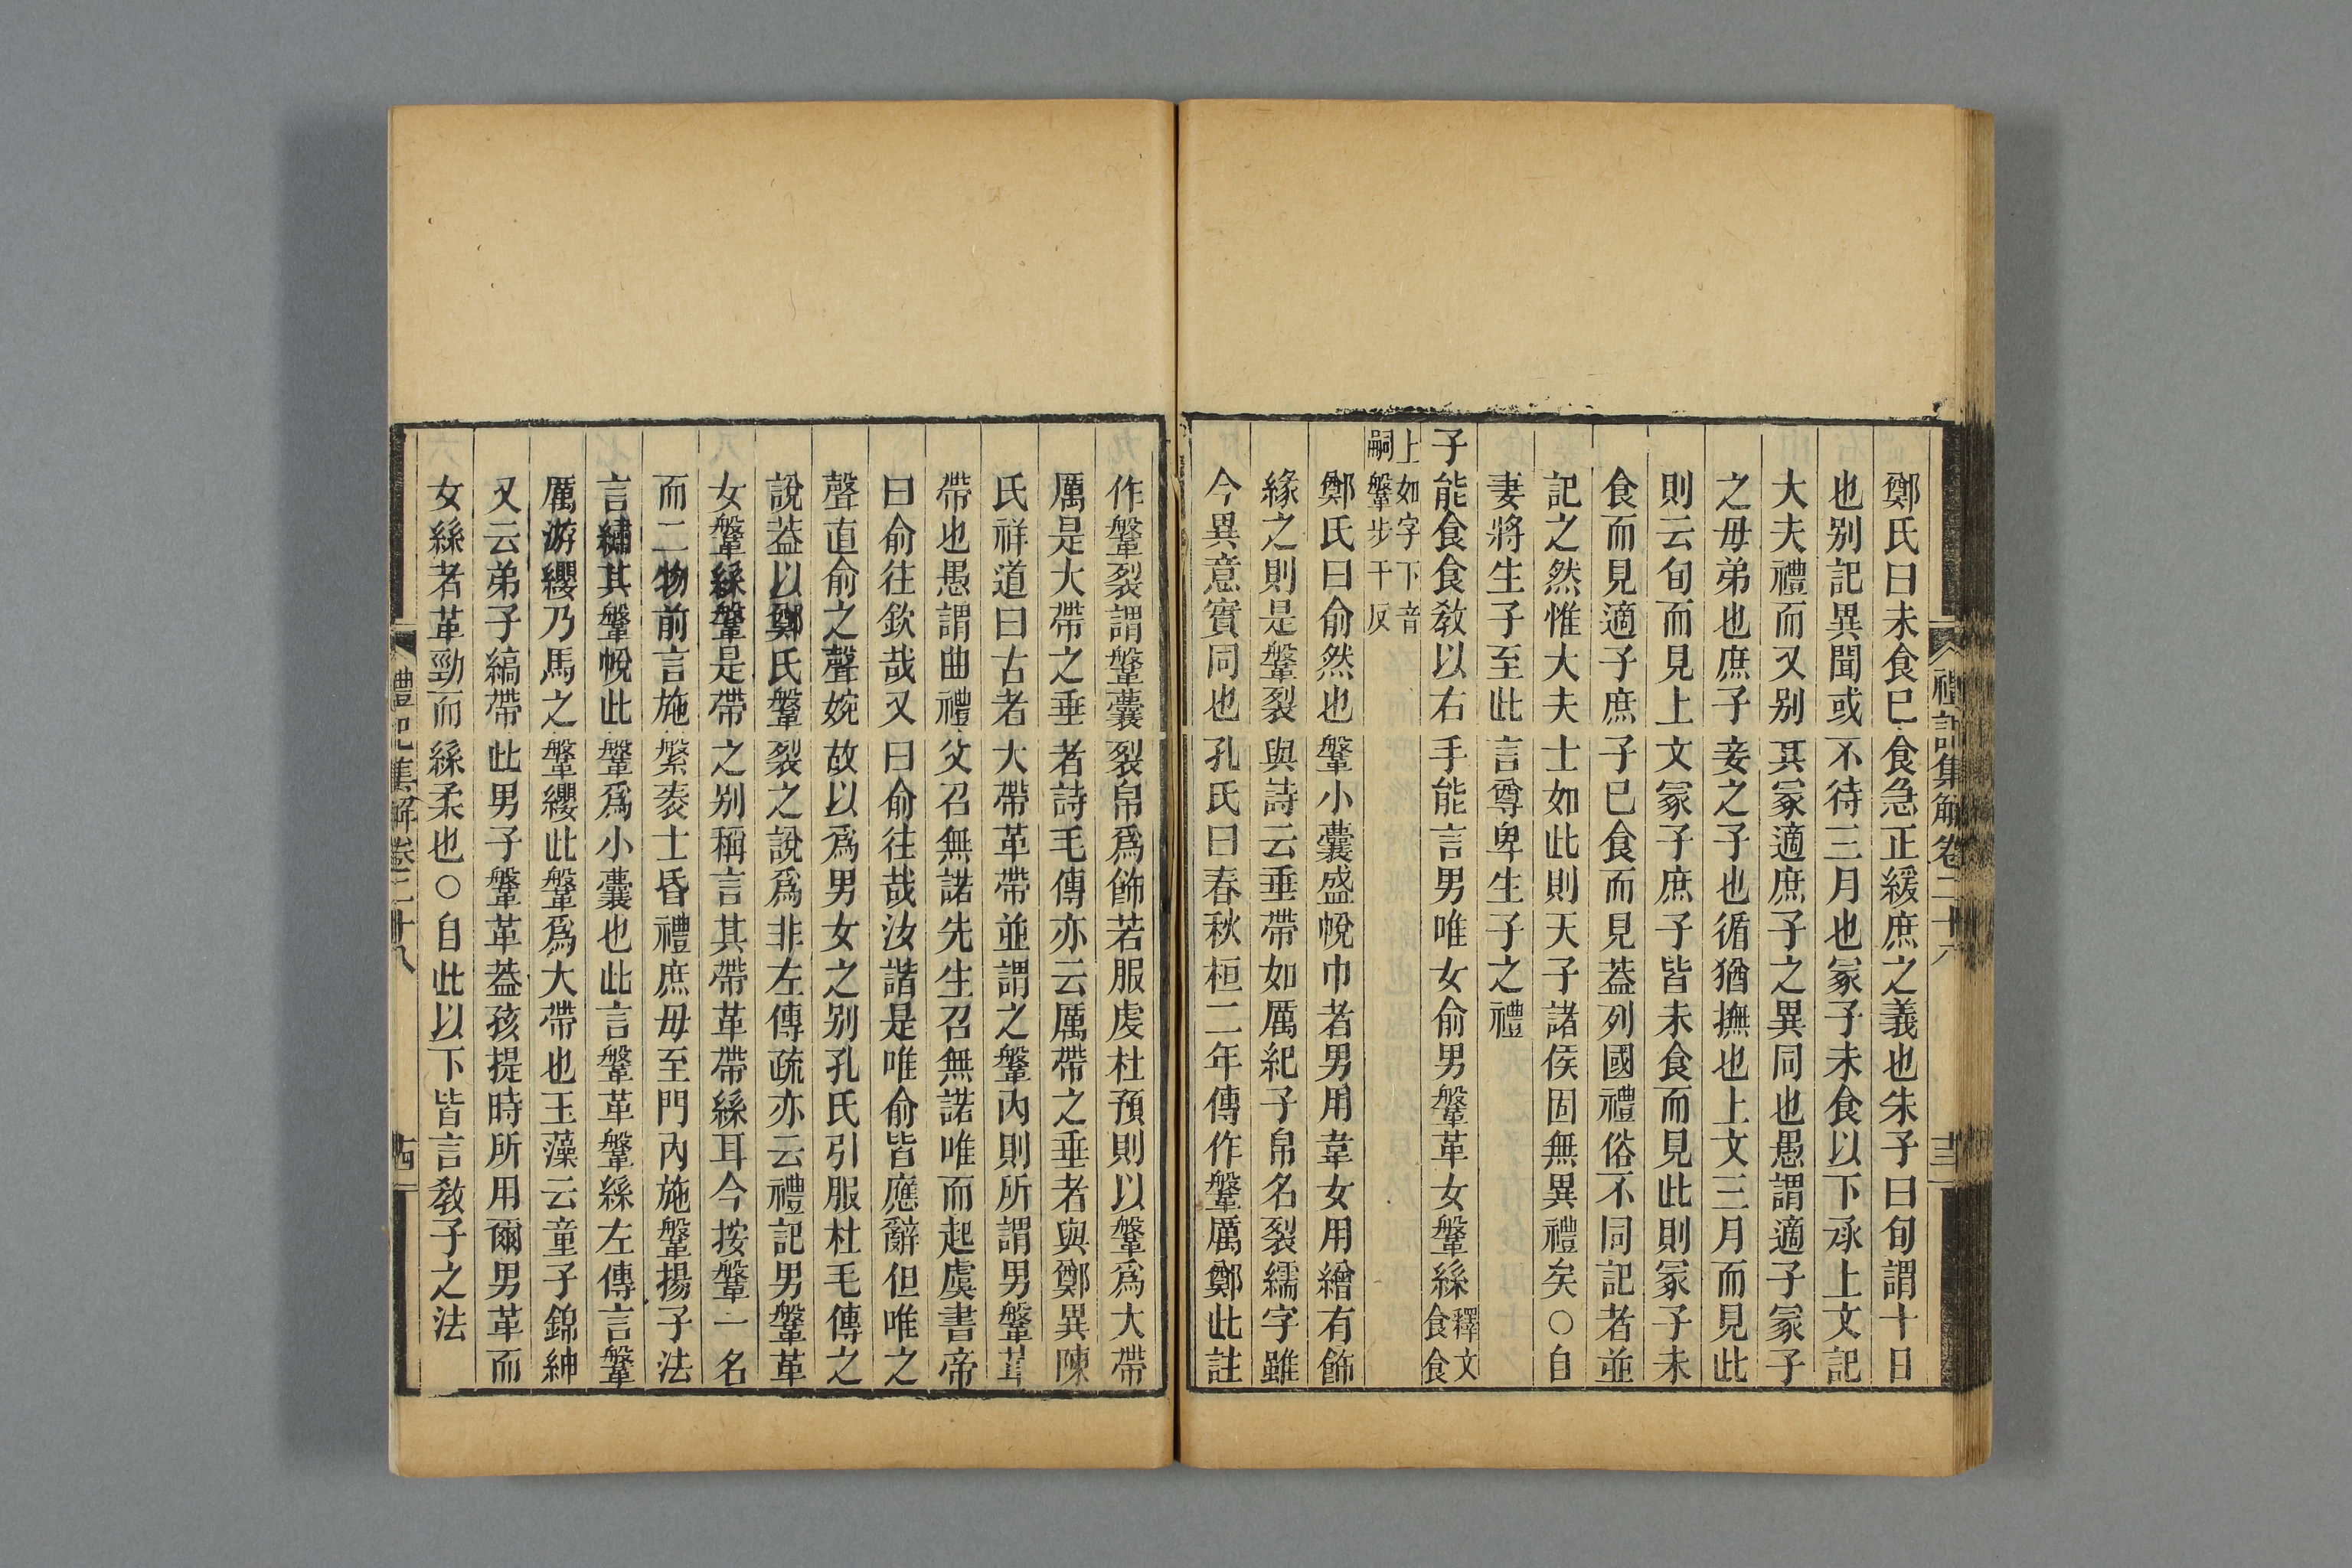 鄭氏曰未食巳食急正緩庶之義也朱子曰旬謂十日
也别記異聞或不待三月也冢子未食以下承上文記
大夫禮而又别其冢適庶子之異同也愚謂適子冢子
之毋弟也庶子妾之子也循猶撫也上文三月而見此
則云旬而見上文冢子庶子皆未食而見此則冢子未
食而見適子庶子巳食而見葢列國禮俗不同記者並
記之然惟大夫士如此則天子諸侯固無異禮矣○自
妻將生子至此言尊卑生子之禮
子能食食敎以右手能言男唯女俞男鞶革女鞶絲釋文食食
上如字下音嗣鞶步干反
鄭氏曰俞然也鞶小囊盛帨巾者男用韋女用繒有飾
緣之則是鞶裂與詩云垂帶如厲紀子帛名裂繻字雖
今異意實同也孔氏曰春秋桓二年傳作鞶厲鄭此註
禮記集解卷二十八
十三
作鞶裂謂鞶囊裂帛爲飾若服虔杜預則以鞶爲大帶
厲是大帶之垂者詩毛傳亦云厲帶之垂者與鄭異陳
氏祥道曰古者大帶革帶並謂之鞶内則所謂男鞶革
帶也愚謂曲禮父召無諾先生召無諾唯而起虞書帝
曰俞往欽哉又曰俞往哉汝諧是唯俞皆應辭但唯之
聲直俞之聲婉故以爲男女之别孔氏引服杜毛傳之
說葢以鄭氏鞶裂之說爲非左傳疏亦云禮記男鞶革
女鞶絲鞶是帶之别稱言其帶革帶絲耳今按鞶一名
而二物前言施縏袠士昏禮庶毋至門内施鞶揚子法
言繡其鞶帨此鞶爲小囊也此言鞶革鞶絲左傳言鞶
厲游纓乃馬之鞶纓此鞶爲大帶也玉藻云童子錦紳
又云弟子縞帶此男子鞶革葢孩提時所用爾男革而
女絲者革勁而絲柔也○自此以下皆言敎子之法
禮記集解卷二十八
十四